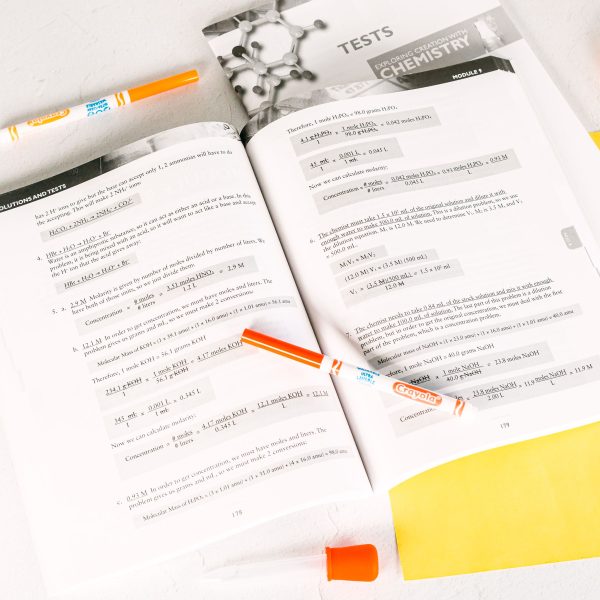 TESTS
EXPLORING CREATION WITH
CHEMISTRY
MODULE 9
SOLUTIONS AND TESTS
has 2 H⁺ ions to give but the base can accept only 1, 2 ammonias will have to do
the accepting. This will make 2 NH₄⁺ ions:
H₂CO₃ + 2NH₃ → 2NH₄⁺ + CO₃²⁻
4. HBr + H₂O → H₃O⁺ + Br⁻
Water is an amphiprotic substance, so it can act as either an acid or a base. In this
problem, it is being mixed with an acid, so it will want to act like a base and accept
the H⁺ ion that the acid gives away:
HBr + H₂O → H₃O⁺ + Br⁻
5. a. 2.9 M Molarity is given by number of moles divided by number of liters. We
have both of those units, so we just divide them:
Concentration = # moles / # liters = 3.51 moles HNO₃ / 1.2 L = 2.9 M
b. 12.1 M In order to get concentration, we must have moles and liters. The
problem gives us grams and mL, so we must make 2 conversions:
Molecular Mass of KOH = (1 × 39.1 amu) + (1 × 16.0 amu) + (1 × 1.01 amu) = 56.1 amu
Therefore, 1 mole KOH = 56.1 grams KOH
234.1 g KOH / 1 × 1 mole KOH / 56.1 g KOH = 4.17 moles KOH
345 mL / 1 × 0.001 L / 1 mL = 0.345 L
Now we can calculate molarity:
Concentration = # moles / # liters = 4.17 moles KOH / 0.345 L = 12.1 moles KOH / L = 12.1 M
c. 0.93 M In order to get concentration, we must have moles and liters. The
problem gives us grams and mL, so we must make 2 conversions:
Molecular Mass of H₃PO₄ = (3 × 1.01 amu) + (1 × 31.0 amu) + (4 × 16.0 amu) = 98.0 amu
178
Therefore, 1 mole H₃PO₄ = 98.0 grams H₃PO₄
4.1 g H₃PO₄ / 1 × 1 mole H₃PO₄ / 98.0 g H₃PO₄ = 0.042 moles H₃PO₄
45 mL / 1 × 0.001 L / 1 mL = 0.045 L
Now we can calculate molarity:
Concentration = # moles / # liters = 0.042 moles H₃PO₄ / 0.045 L = 0.93 moles H₃PO₄ / L = 0.93 M
6. The chemist must take 1.5 × 10² mL of the original solution and dilute it with
enough water to make 500.0 mL of solution. This is a dilution problem, so we use
the dilution equation. M₁ is 12.0 M. We need to determine V₁. M₂ is 3.5 M, and V₂
is 500.0 mL.
M₁V₁ = M₂V₂
(12.0 M) V₁ = (3.5 M) (500 mL)
V₁ = (3.5 M)(500 mL) / 12.0 M = 1.5 × 10² mL
7. The chemist needs to take 0.84 mL of the stock solution and mix it with enough
water to make 100.0 mL of solution. The last part of this problem is a dilution
problem, but in order to get the original concentration, we must deal with the first
part of the problem, which is a concentration problem.
Molecular mass of NaOH = (1 × 23.0 amu) + (1 × 16.0 amu) + (1 × 1.01 amu) = 40.0 amu
Therefore, 1 mole NaOH = 40.0 grams NaOH
1 mole NaOH / 40.0 g NaOH = 23.8 moles NaOH
23.8 moles NaOH / 2.00 L = 11.9 moles NaOH / L = 11.9 M
179
Crayola
Crayola
ULTRA